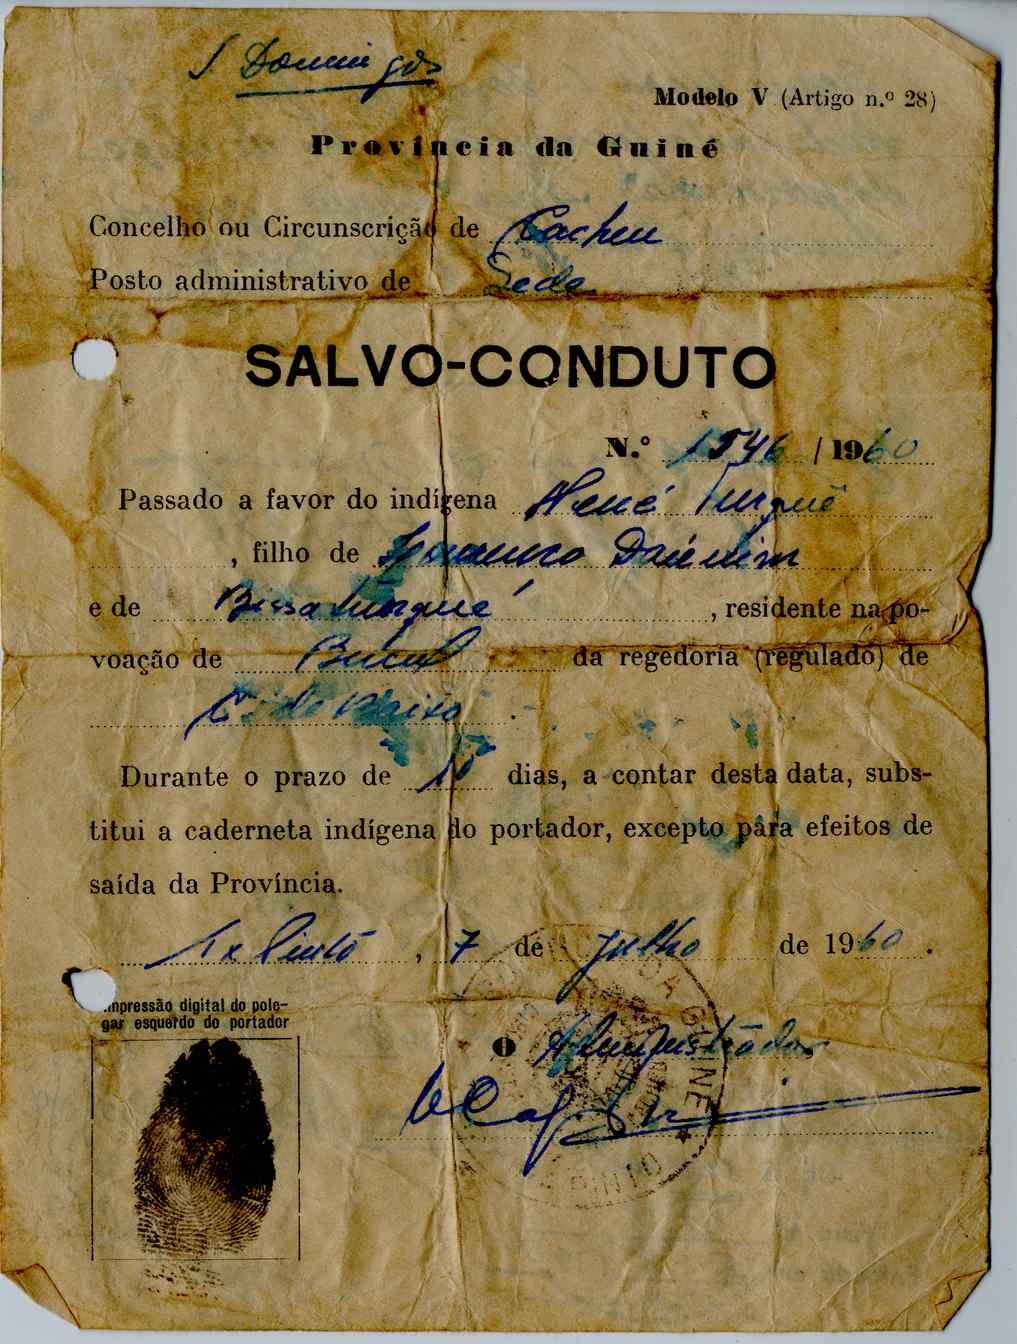 S. Domingos
Modelo V (Artigo n.º 28)
Província da Guiné
Concelho ou Circunscrição de Cacheu
Posto administrativo de Sede
SALVO-CONDUTO
N.º 1546/1960
Passado a favor do indígena Turquê
, filho de
e de Bissa , residente na po-
voação de Bucul da regedoria (regulado) de
Durante o prazo de 10 dias, a contar desta data, subs-
titui a caderneta indígena do portador, excepto para efeitos de
saída da Província.
Tx Pinto, 7 de Julho de 1960.
Impressão digital do pole-
gar esquerdo do portador
O Administrador
GUINÉ